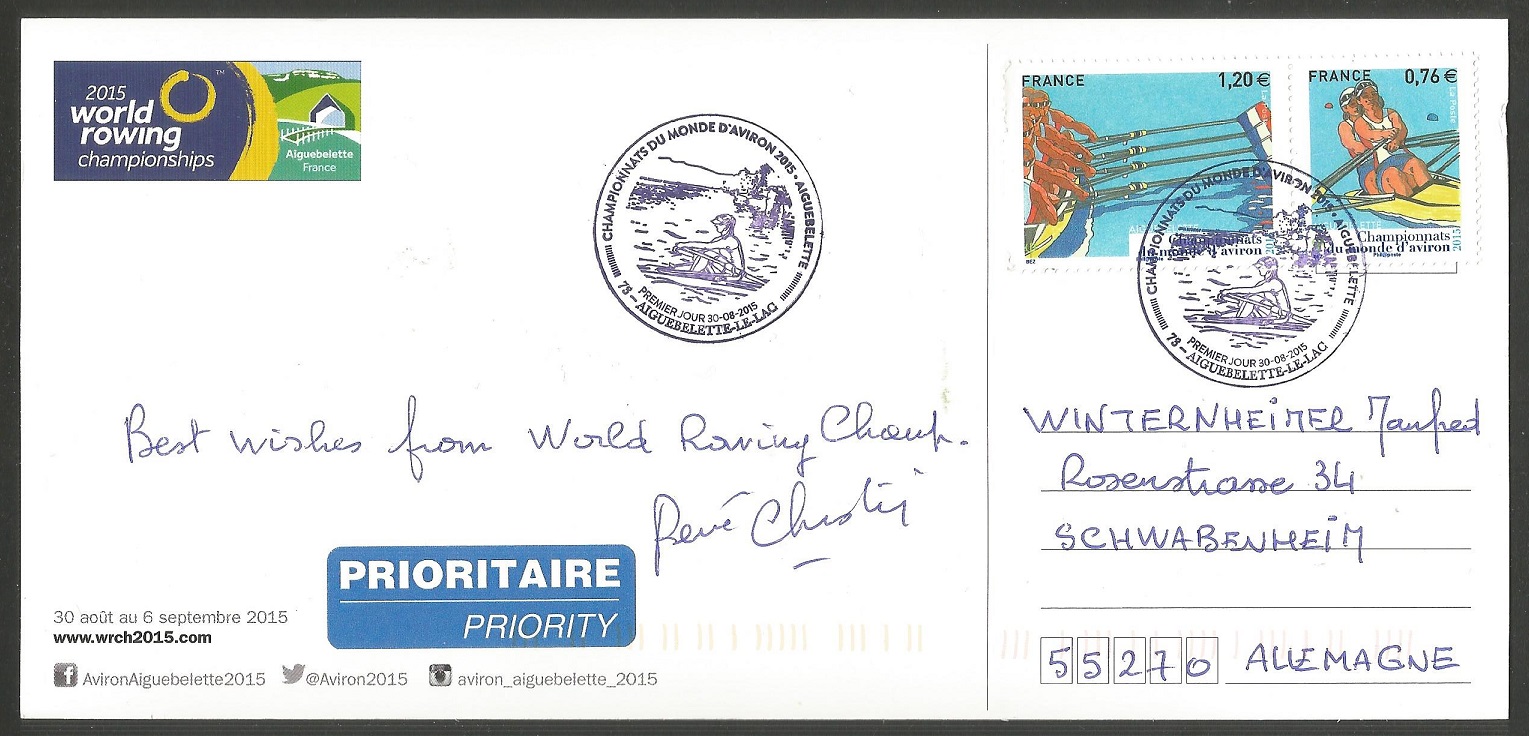 2015
world
rowing
championships
TM
Aiguebelette
France
CHAMPIONNATS DU MONDE D'AVIRON 2015 • AIGUEBELETTE
PREMIER JOUR 30-08-2015
73 – AIGUEBELETTE-LE-LAC
Best wishes from World Rowing Champ.
René Christin
PRIORITAIRE
PRIORITY
30 août au 6 septembre 2015
www.wrch2015.com
AvironAiguebelette2015 @Aviron2015 aviron_aiguebelette_2015
FRANCE 1,20 €
Championnats
du monde d'aviron
FRANCE 0,76 €
La Poste
Championnats
du monde d'aviron
2015
Philaposte
CHAMPIONNATS DU MONDE D'AVIRON 2015 • AIGUEBELETTE
PREMIER JOUR 30-08-2015
73 – AIGUEBELETTE-LE-LAC
WINTERNHEIMER Manfred
Rosenstrasse 34
SCHWABENHEIM
55270 ALLEMAGNE